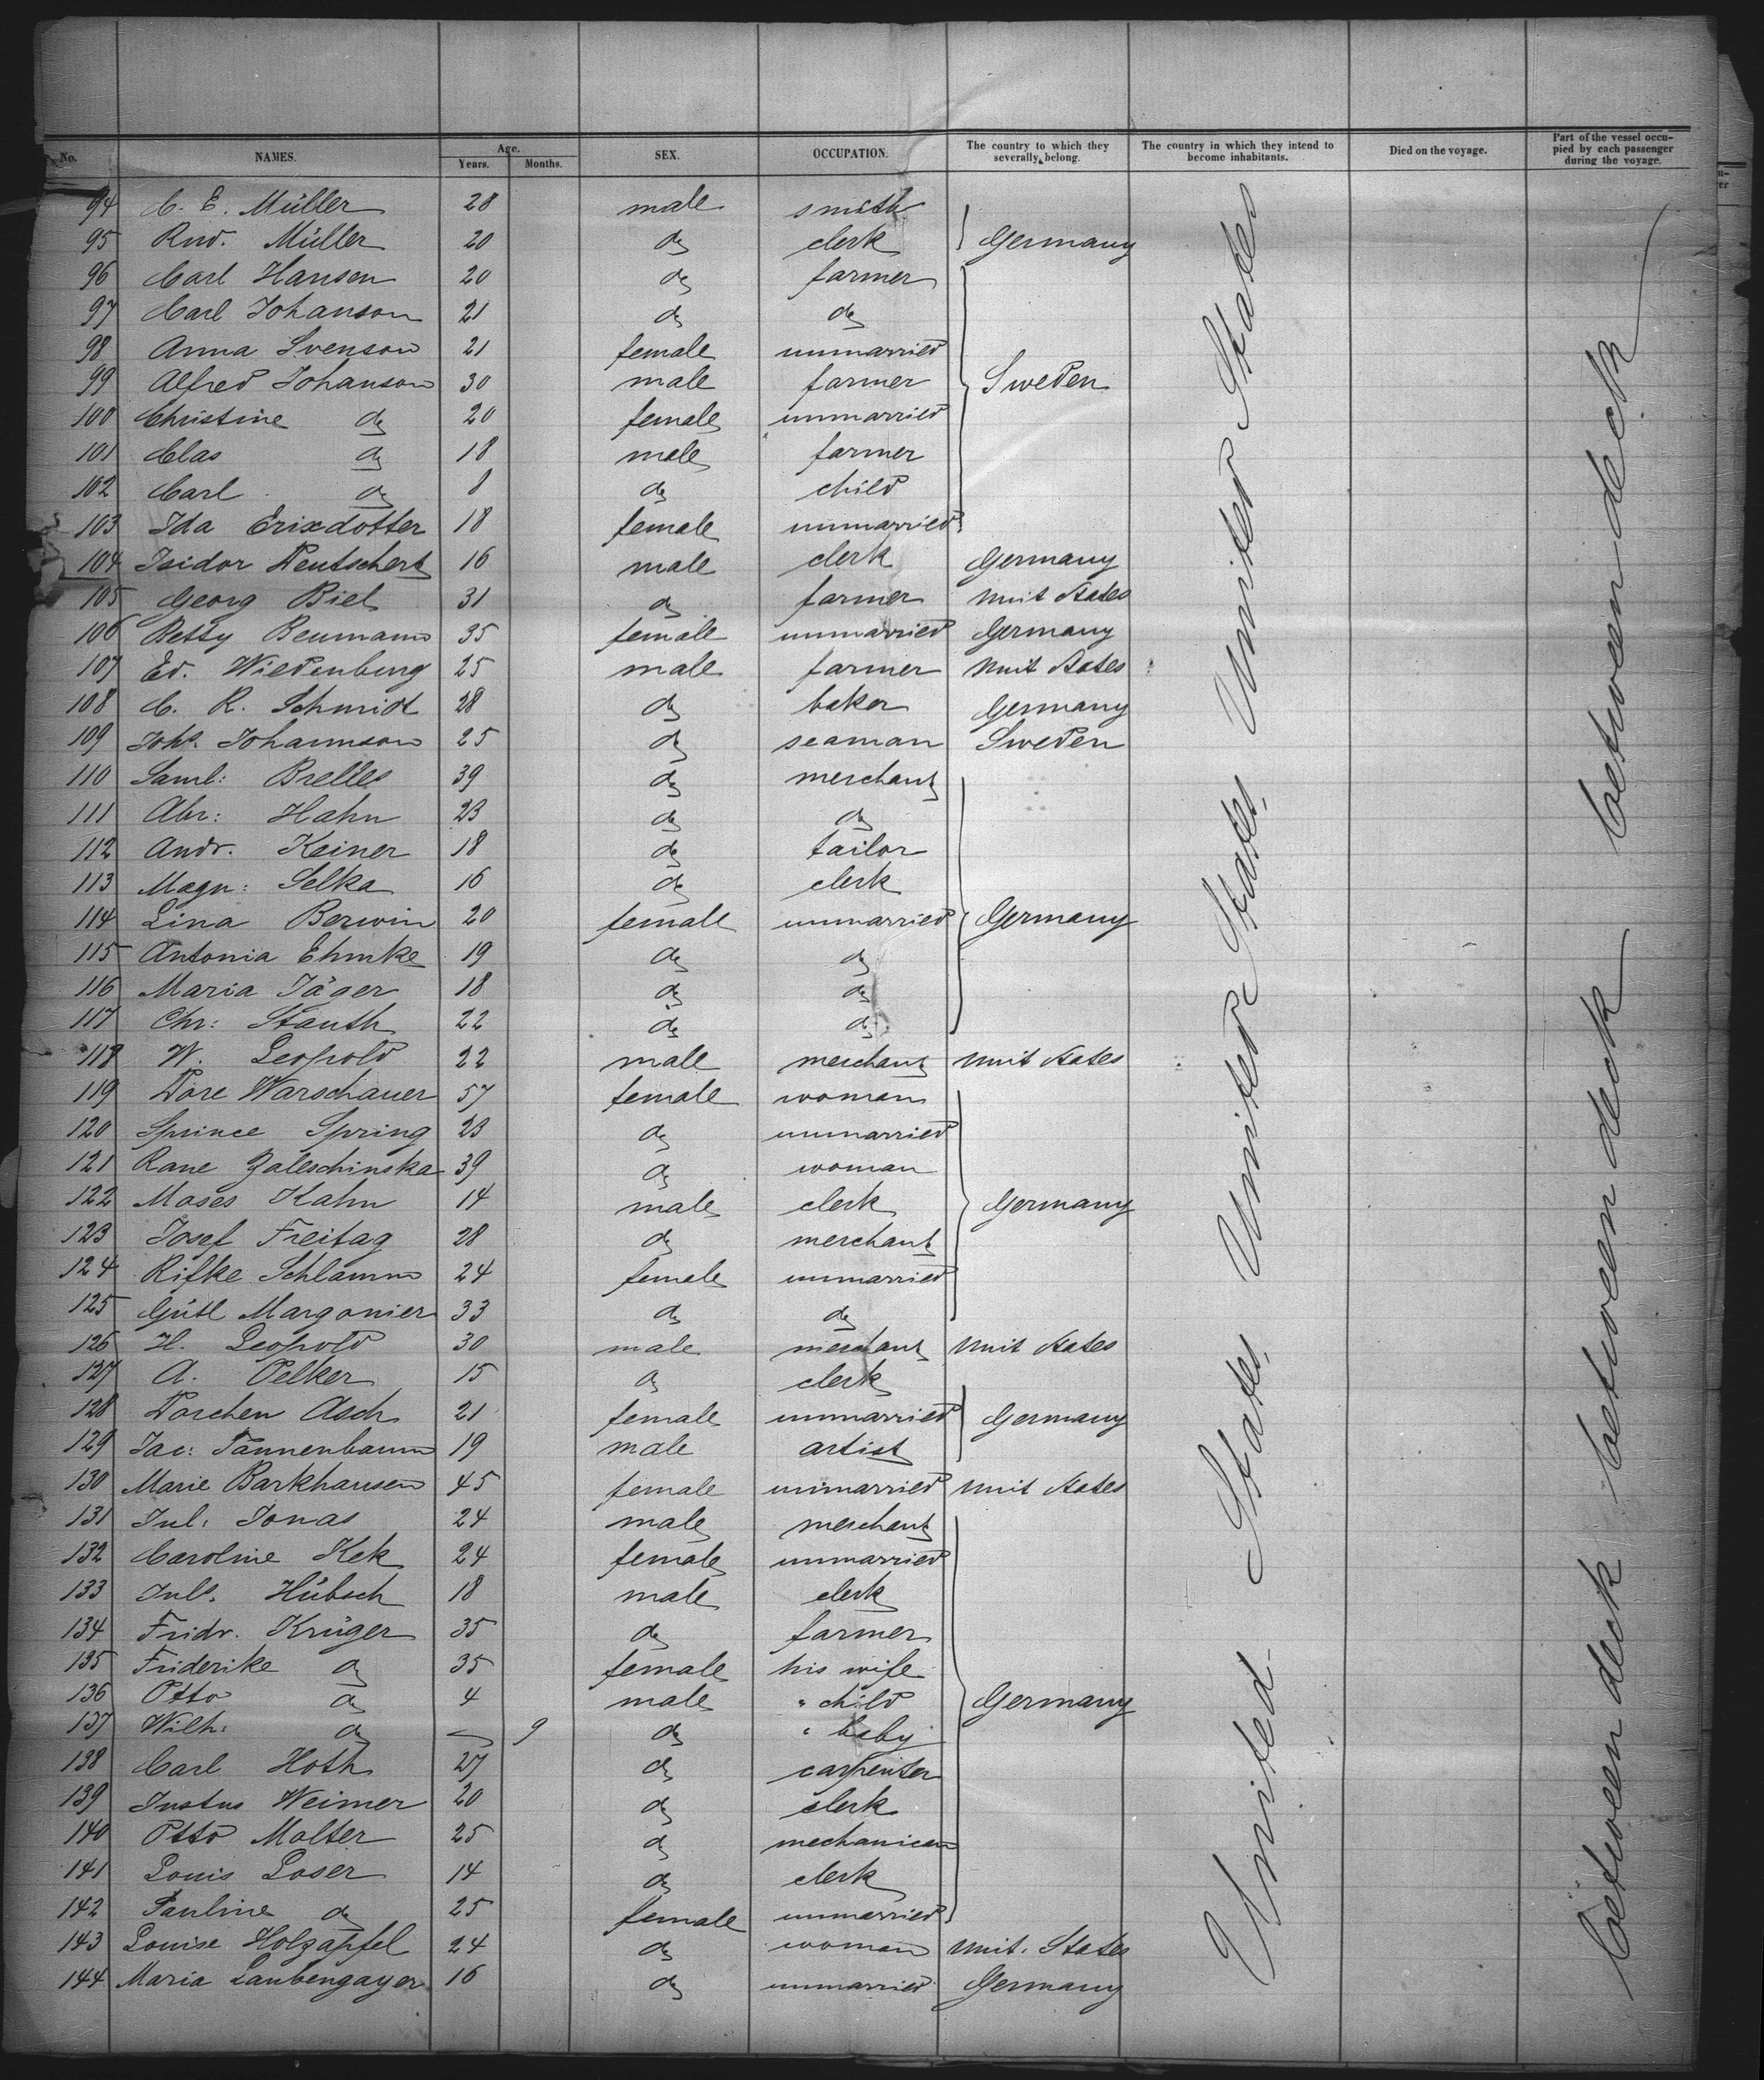 No. NAMES. Age. Years. Months. SEX. OCCUPATION. The country to which they severally belong. The country in which they intend to become inhabitants. Died on the voyage. Part of the vessel occupied by each passenger during the voyage.
94 C. E. Müller 28 male smith
95 Rud. Müller 20 do clerk Germany
96 Carl Hansen 20 do farmer
97 Carl Johanson 21 do do
98 Anna Svenson 21 female unmarried
99 Alfred Johanson 30 male farmer Sweden
100 Christine do 20 female unmarried
101 Clas do 18 male farmer
102 Carl do 8 do child
103 Ida Erixdotter 18 female unmarried
104 Isidor 16 male clerk Germany
105 Georg Biel 31 do farmer Unit States
106 Betty Beumann 35 female unmarried Germany
107 Ed. Wiedenburg 25 male farmer Unit States
108 C. R. Schmidt 28 do baker Germany
109 Johs. Johannson 25 do seaman Sweden
110 Saml: Brelles 39 do merchant
111 Abr: Hahn 23 do do
112 Andr. Keiner 18 do tailor
113 Magn: Selka 16 do clerk
114 Lina Berwin 20 female unmarried Germany
115 Antonia Ehmke 19 do do
116 Maria Jäger 18 do do
117 Chr: Stauth 22 do do
118 W. Leopold 22 male merchant Unit States
119 Dore Warschauer 57 female woman
120 Sprince Spring 23 do unmarried
121 Rane Zaleschinska 39 do woman
122 Moses Kahn 14 male clerk Germany
123 Josef Freitag 28 do merchant
124 Rifke Schlamm 24 female unmarried
125 Gütl Margonier 33 do do
126 H. Leopold 30 male merchant Unit States
127 A. Oelker 15 do clerk
128 Dorchen Asch 21 female unmarried Germany
129 Jac: Tannenbaum 19 male artist
130 Marie Barkhausen 45 female unmarried Unit States
131 Jul. Jonas 24 male merchant
132 Caroline Kek 24 female unmarried
133 Juls. Hübsch 18 male clerk
134 Fridr. Krüger 35 do farmer
135 Friderike do 35 female his wife
136 Otto do 4 male " child Germany
137 Wilh: do — 9 do " baby
138 Carl Hoth 27 do carpenter
139 Justus Weimer 20 do clerk
140 Otto Molter 25 do mechanican
141 Louis Loser 14 do clerk
142 Pauline do 25 female unmarried
143 Louise Holzapfel 24 do woman Unit. States
144 Maria Laubengayer 16 do unmarried Germany
United States United States United States
between deck between deck between deck